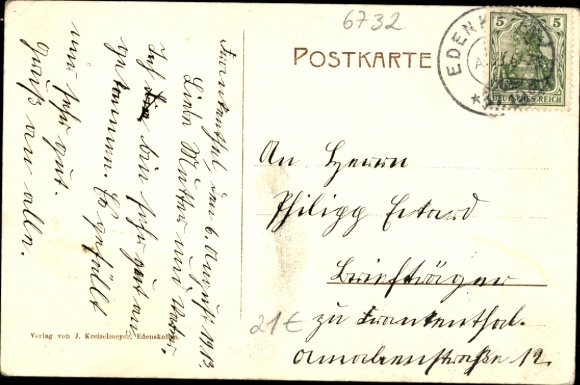 6732
POSTKARTE
EDENK
5 5
DEUTSCHES REICH
Frankenthal, den 6. August 1913.
Liebe Mutter und Vater.
Ich bin sehr gut an
gekommen. Es gefällt
mir sehr gut.
Gruß an alle.
An Herrn
Philipp Erhard
Briefträger
zu Frankenthal.
Amalienstraße 12.
21€
Verlag von J. Kreiselmeyer, Edenkoben.